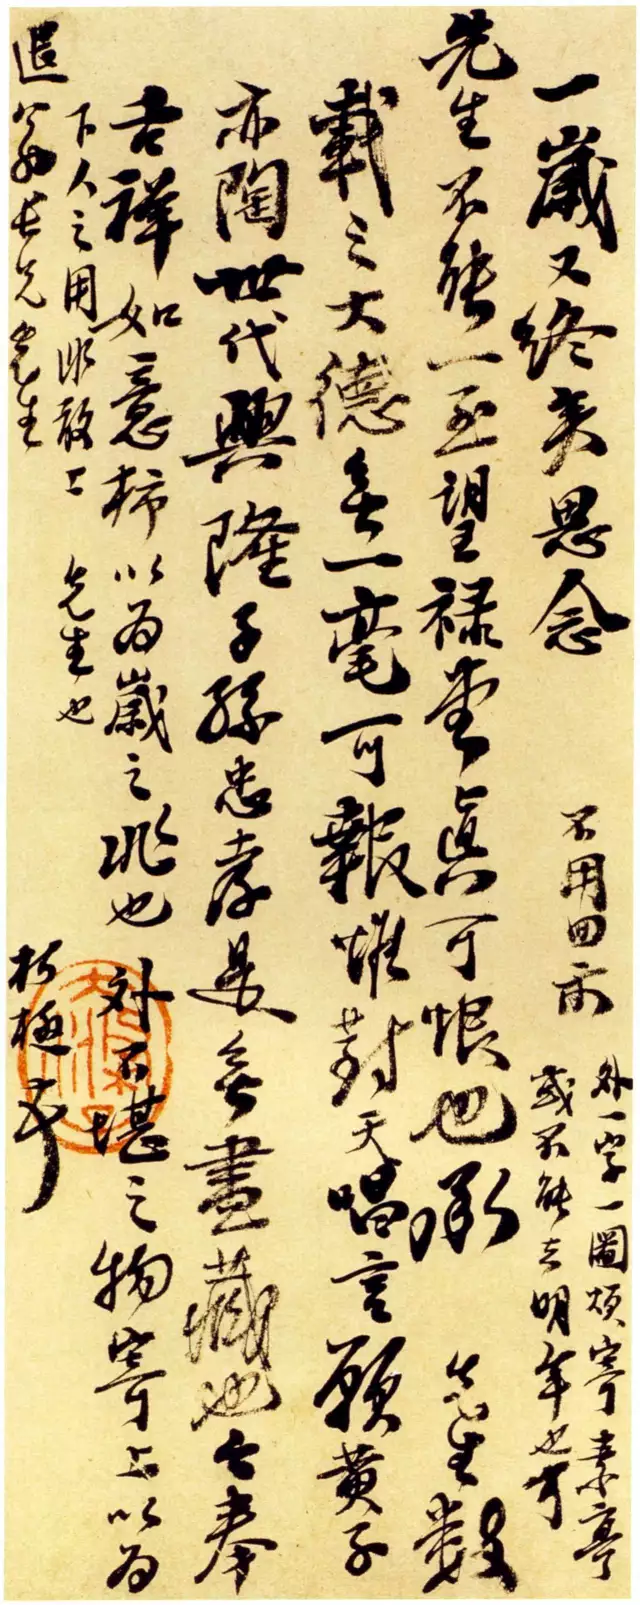 一歲又終矣思念
不用回示
外一字一圖煩寄素亭
或不能去明年也可
先生不能一至望祿堂真可恨也承 先生數
載之大德無一毫可報惟對天唱言願黃子
亦陶世代興隆子孫忠孝是無盡藏也今奉
吉祥如意柿以為歲之兆也外不堪之物寄上以為
下人之用非敢上 先生也
退翁長兄先生 朽極